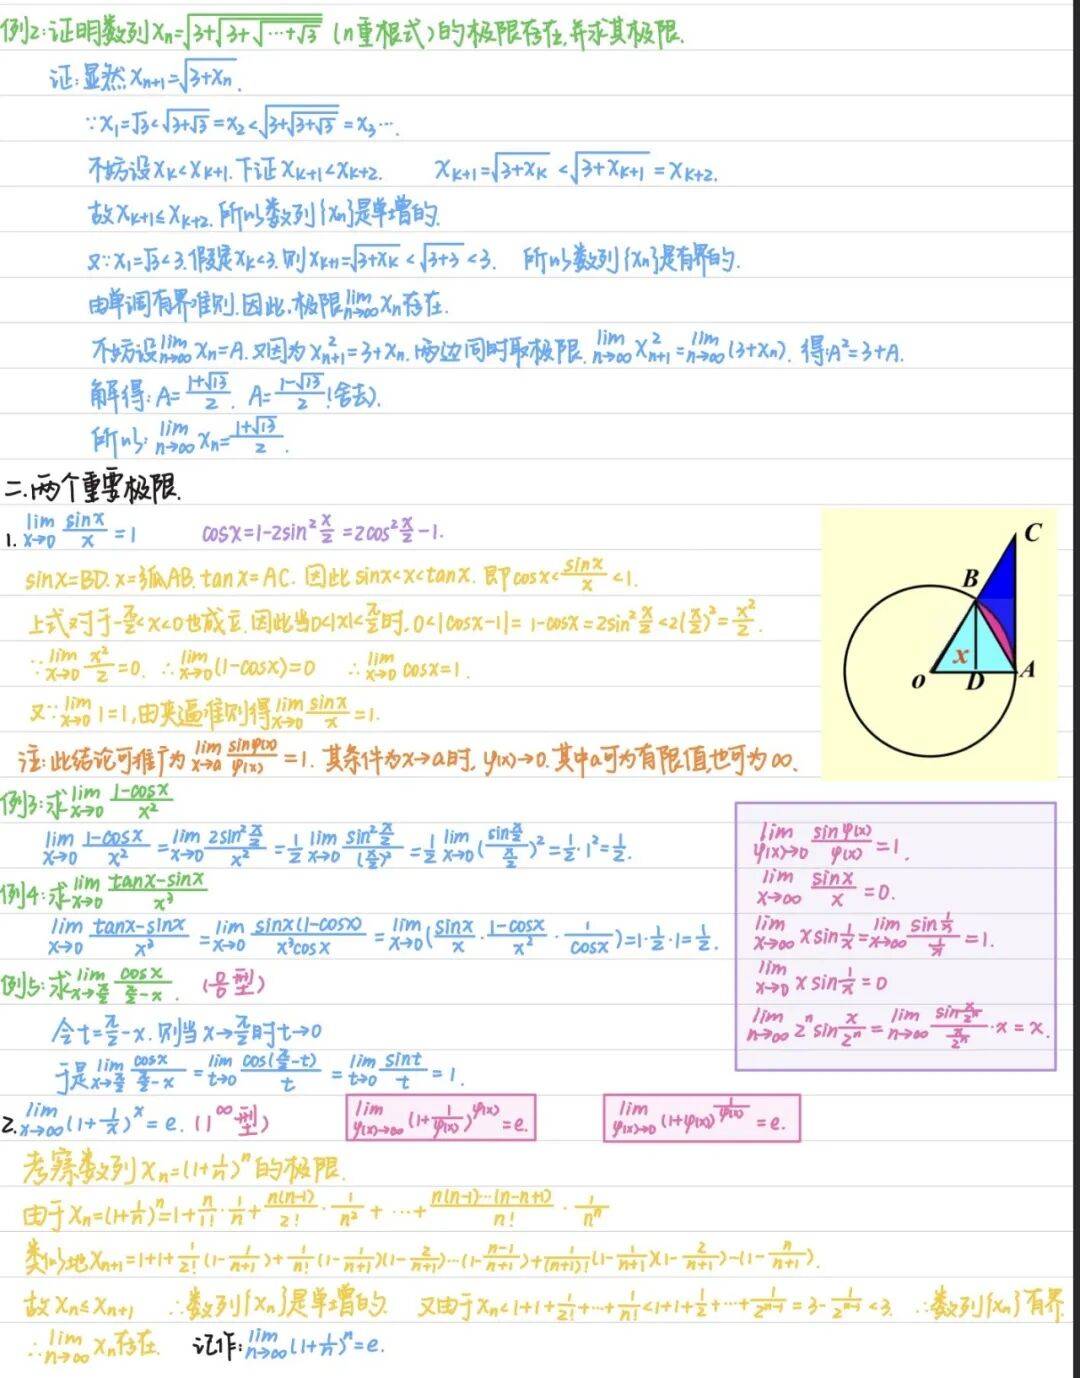 例2:证明数列xₙ=√(3+√(3+√(⋯+√3))) (n重根式)的极限存在,并求其极限.
证:显然xₙ₊₁=√(3+xₙ).
∵x₁=√3<√(3+√3)=x₂<√(3+√(3+√3))=x₃⋯.
不妨设xₖ<xₖ₊₁.下证xₖ₊₁<xₖ₊₂. xₖ₊₁=√(3+xₖ)<√(3+xₖ₊₁)=xₖ₊₂.
故xₖ₊₁≤xₖ₊₂.所以数列{xₙ}是单增的.
又∵x₁=√3<3.假定xₖ<3.则xₖ₊₁=√(3+xₖ)<√(3+3)<3. 所以数列{xₙ}是有界的.
由单调有界准则.因此,极限lim n→∞ xₙ存在.
不妨设lim n→∞ xₙ=A.又因为xₙ₊₁²=3+xₙ.两边同时取极限.lim n→∞ xₙ₊₁²=lim n→∞ (3+xₙ). 得:A²=3+A.
解得:A=(1+√13)/2. A=(1-√13)/2(舍去).
所以:lim n→∞ xₙ=(1+√13)/2.
二.两个重要极限.
1. lim x→0 sinx/x=1 cosx=1-2sin²x/2=2cos²x/2-1.
sinx=BD.x=弧AB.tanx=AC.因此sinx<x<tanx.即cosx<sinx/x<1.
上式对于-π/2<x<0也成立.因此当0<|x|<π/2时,0<|cosx-1|=1-cosx=2sin²x/2<2(x/2)²=x²/2.
∵lim x→0 x²/2=0. ∴lim x→0 (1-cosx)=0 ∴lim x→0 cosx=1.
又∵lim x→0 1=1,由夹逼准则得lim x→0 sinx/x=1.
注:此结论可推广为lim x→a sinφ(x)/φ(x)=1.其条件为x→a时,φ(x)→0.其中a可为有限值,也可为∞.
C
B
x
O D A
例3:求lim x→0 (1-cosx)/x²
lim x→0 (1-cosx)/x²=lim x→0 (2sin²x/2)/x²=1/2 lim x→0 (sin²x/2)/(x/2)²=1/2 lim x→0 ((sin x/2)/(x/2))²=1/2·1²=1/2.
例4:求lim x→0 (tanx-sinx)/x³
lim x→0 (tanx-sinx)/x³=lim x→0 sinx(1-cosx)/(x³cosx)=lim x→0 (sinx/x·(1-cosx)/x²·1/cosx)=1·1/2·1=1/2.
例5:求lim x→π/2 cosx/(π/2-x). (0/0型)
令t=π/2-x.则当x→π/2时t→0
于是lim x→π/2 cosx/(π/2-x)=lim t→0 cos(π/2-t)/t=lim t→0 sint/t=1.
lim φ(x)→0 sinφ(x)/φ(x)=1.
lim x→∞ sinx/x=0.
lim x→∞ xsin1/x=lim x→∞ (sin1/x)/(1/x)=1.
lim x→0 xsin1/x=0
lim n→∞ 2ⁿsin x/2ⁿ=lim n→∞ (sin x/2ⁿ)/(x/2ⁿ)·x=x.
2. lim x→∞ (1+1/x)ˣ=e. (1^∞型) lim φ(x)→∞ (1+1/φ(x))^φ(x)=e. lim φ(x)→0 (1+φ(x))^(1/φ(x))=e.
考察数列xₙ=(1+1/n)ⁿ的极限.
由于xₙ=(1+1/n)ⁿ=1+n/1!·1/n+n(n-1)/2!·1/n²+⋯+n(n-1)⋯(n-n+1)/n!·1/nⁿ
类似地xₙ₊₁=1+1+1/2!(1-1/(n+1))+1/n!(1-1/(n+1))(1-2/(n+1))⋯(1-(n-1)/(n+1))+1/(n+1)!(1-1/(n+1))(1-2/(n+1))⋯(1-n/(n+1)).
故xₙ≤xₙ₊₁ ∴数列{xₙ}是单增的. 又由于xₙ<1+1+1/2!+⋯+1/n!<1+1+1/2+⋯+1/2ⁿ⁻¹=3-1/2ⁿ⁻¹<3. ∴数列{xₙ}有界
∴lim n→∞ xₙ存在. 记作:lim n→∞ (1+1/n)ⁿ=e.